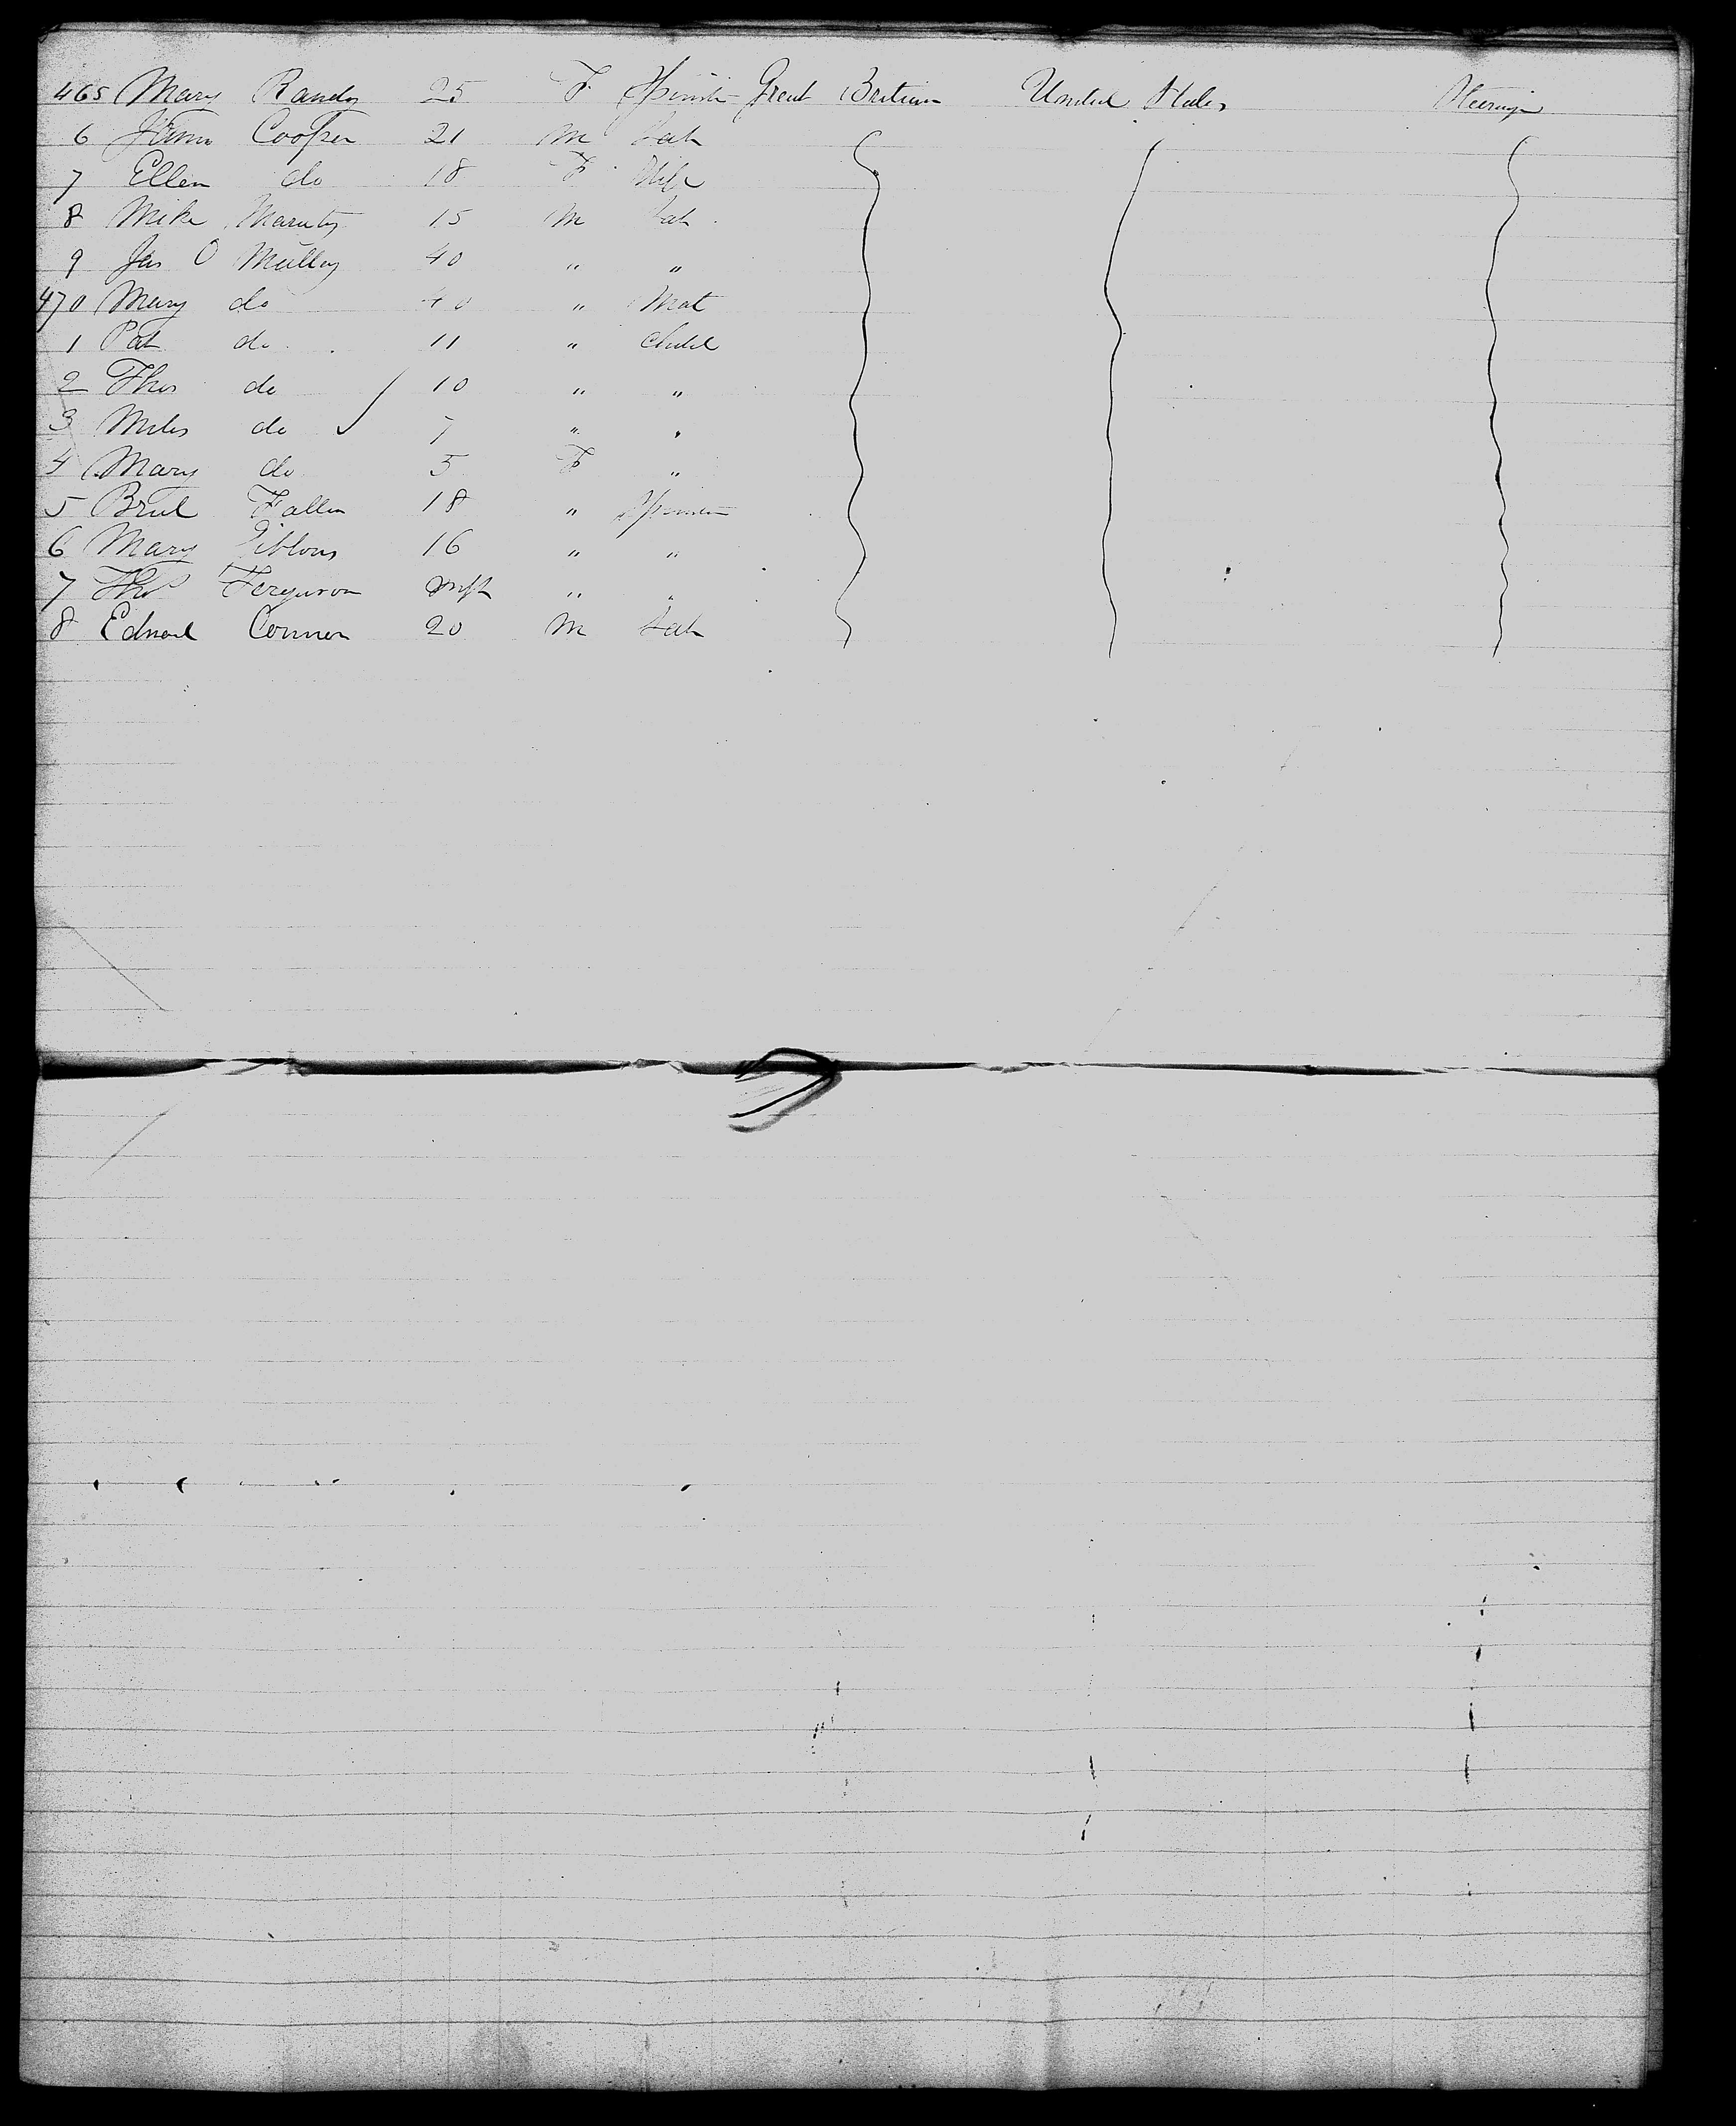 465 Mary Randy 25 F Spinster Great Britain United States Steerage
6 Cooper 21 M Lab
7 Ellen do 18 F Wife
8 Mike 15 M Lab
9 Jas O Malley 40 " "
470 Mary do 40 " Mat
1 Pat do 11 " Child
2 Thos do 10 " "
3 Miles do 7 " "
4 Mary do 5 F "
5 Brid Fallen 18 " Spinster
6 Mary Gibbons 16 " "
7 Thos Ferguson " "
8 Edward Connor 20 M Lab